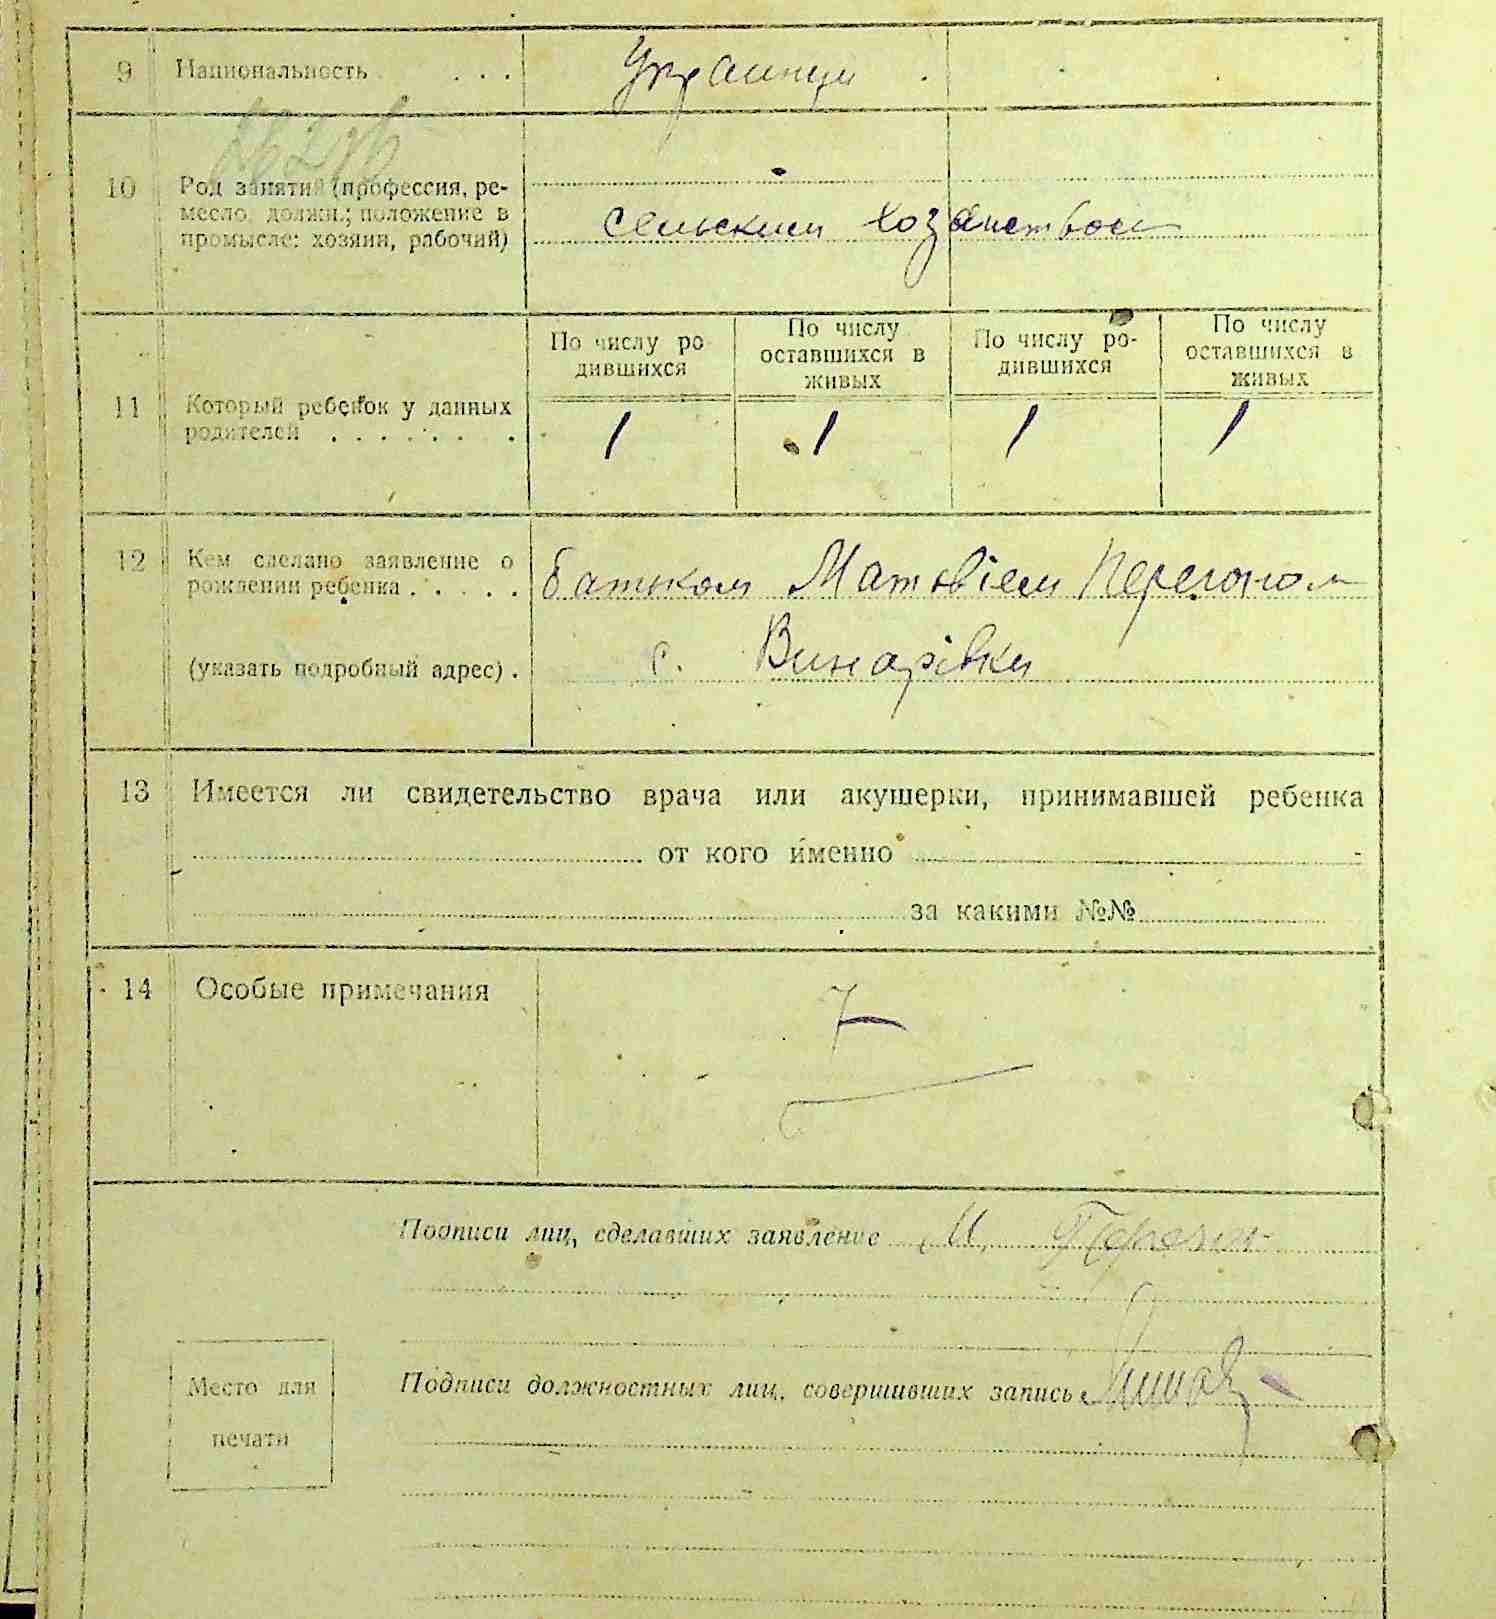 9 Национальность . . . Украинцы
10 Род занятий (профессия, ре-
месло, должн.; положение в
промысле: хозяин, рабочий)
сельским хозяйством
По числу ро-
дившихся
По числу
оставшихся в
живых
По числу ро-
дившихся
По числу
оставшихся в
живых
11 Который ребенок у данных
родителей . . . . . . . .
1 1 1 1
12 Кем сделано заявление о
рождении ребенка . . . . .
батьком Матвієм
(указать подробный адрес) .
с. Винарівки
13 Имеется ли свидетельство врача или акушерки, принимавшей ребенка
от кого именно
за какими №№
14 Особые примечания
Подписи лиц, сделавших заявление М.
Подписи должностных лиц, совершивших запись
Место для
печати